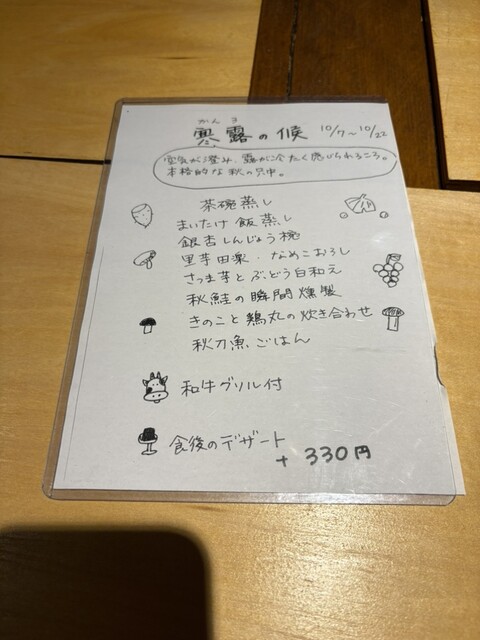 かんろ
寒露の候 10/7〜10/22
空気が澄み、露が冷たく感じられるころ。
本格的な秋の只中。
茶碗蒸し
まいたけ飯蒸し
銀杏しんじょう椀
里芋田楽・なめこおろし
さつま芋とぶどう白和え
秋鮭の瞬間燻製
きのこと鶏丸の炊き合わせ
秋刀魚ごはん
和牛グリル付
食後のデザート
+330円